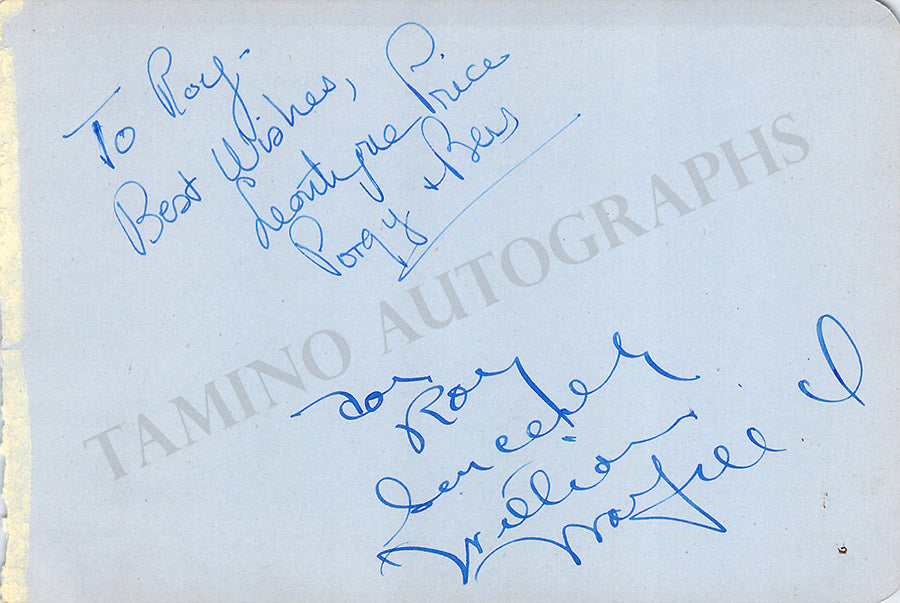 To Roy-
Best Wishes,
Leontyne Price
Porgy + Bess
TAMINO AUTOGRAPHS
For Roy
Sincerely
William
Warfield